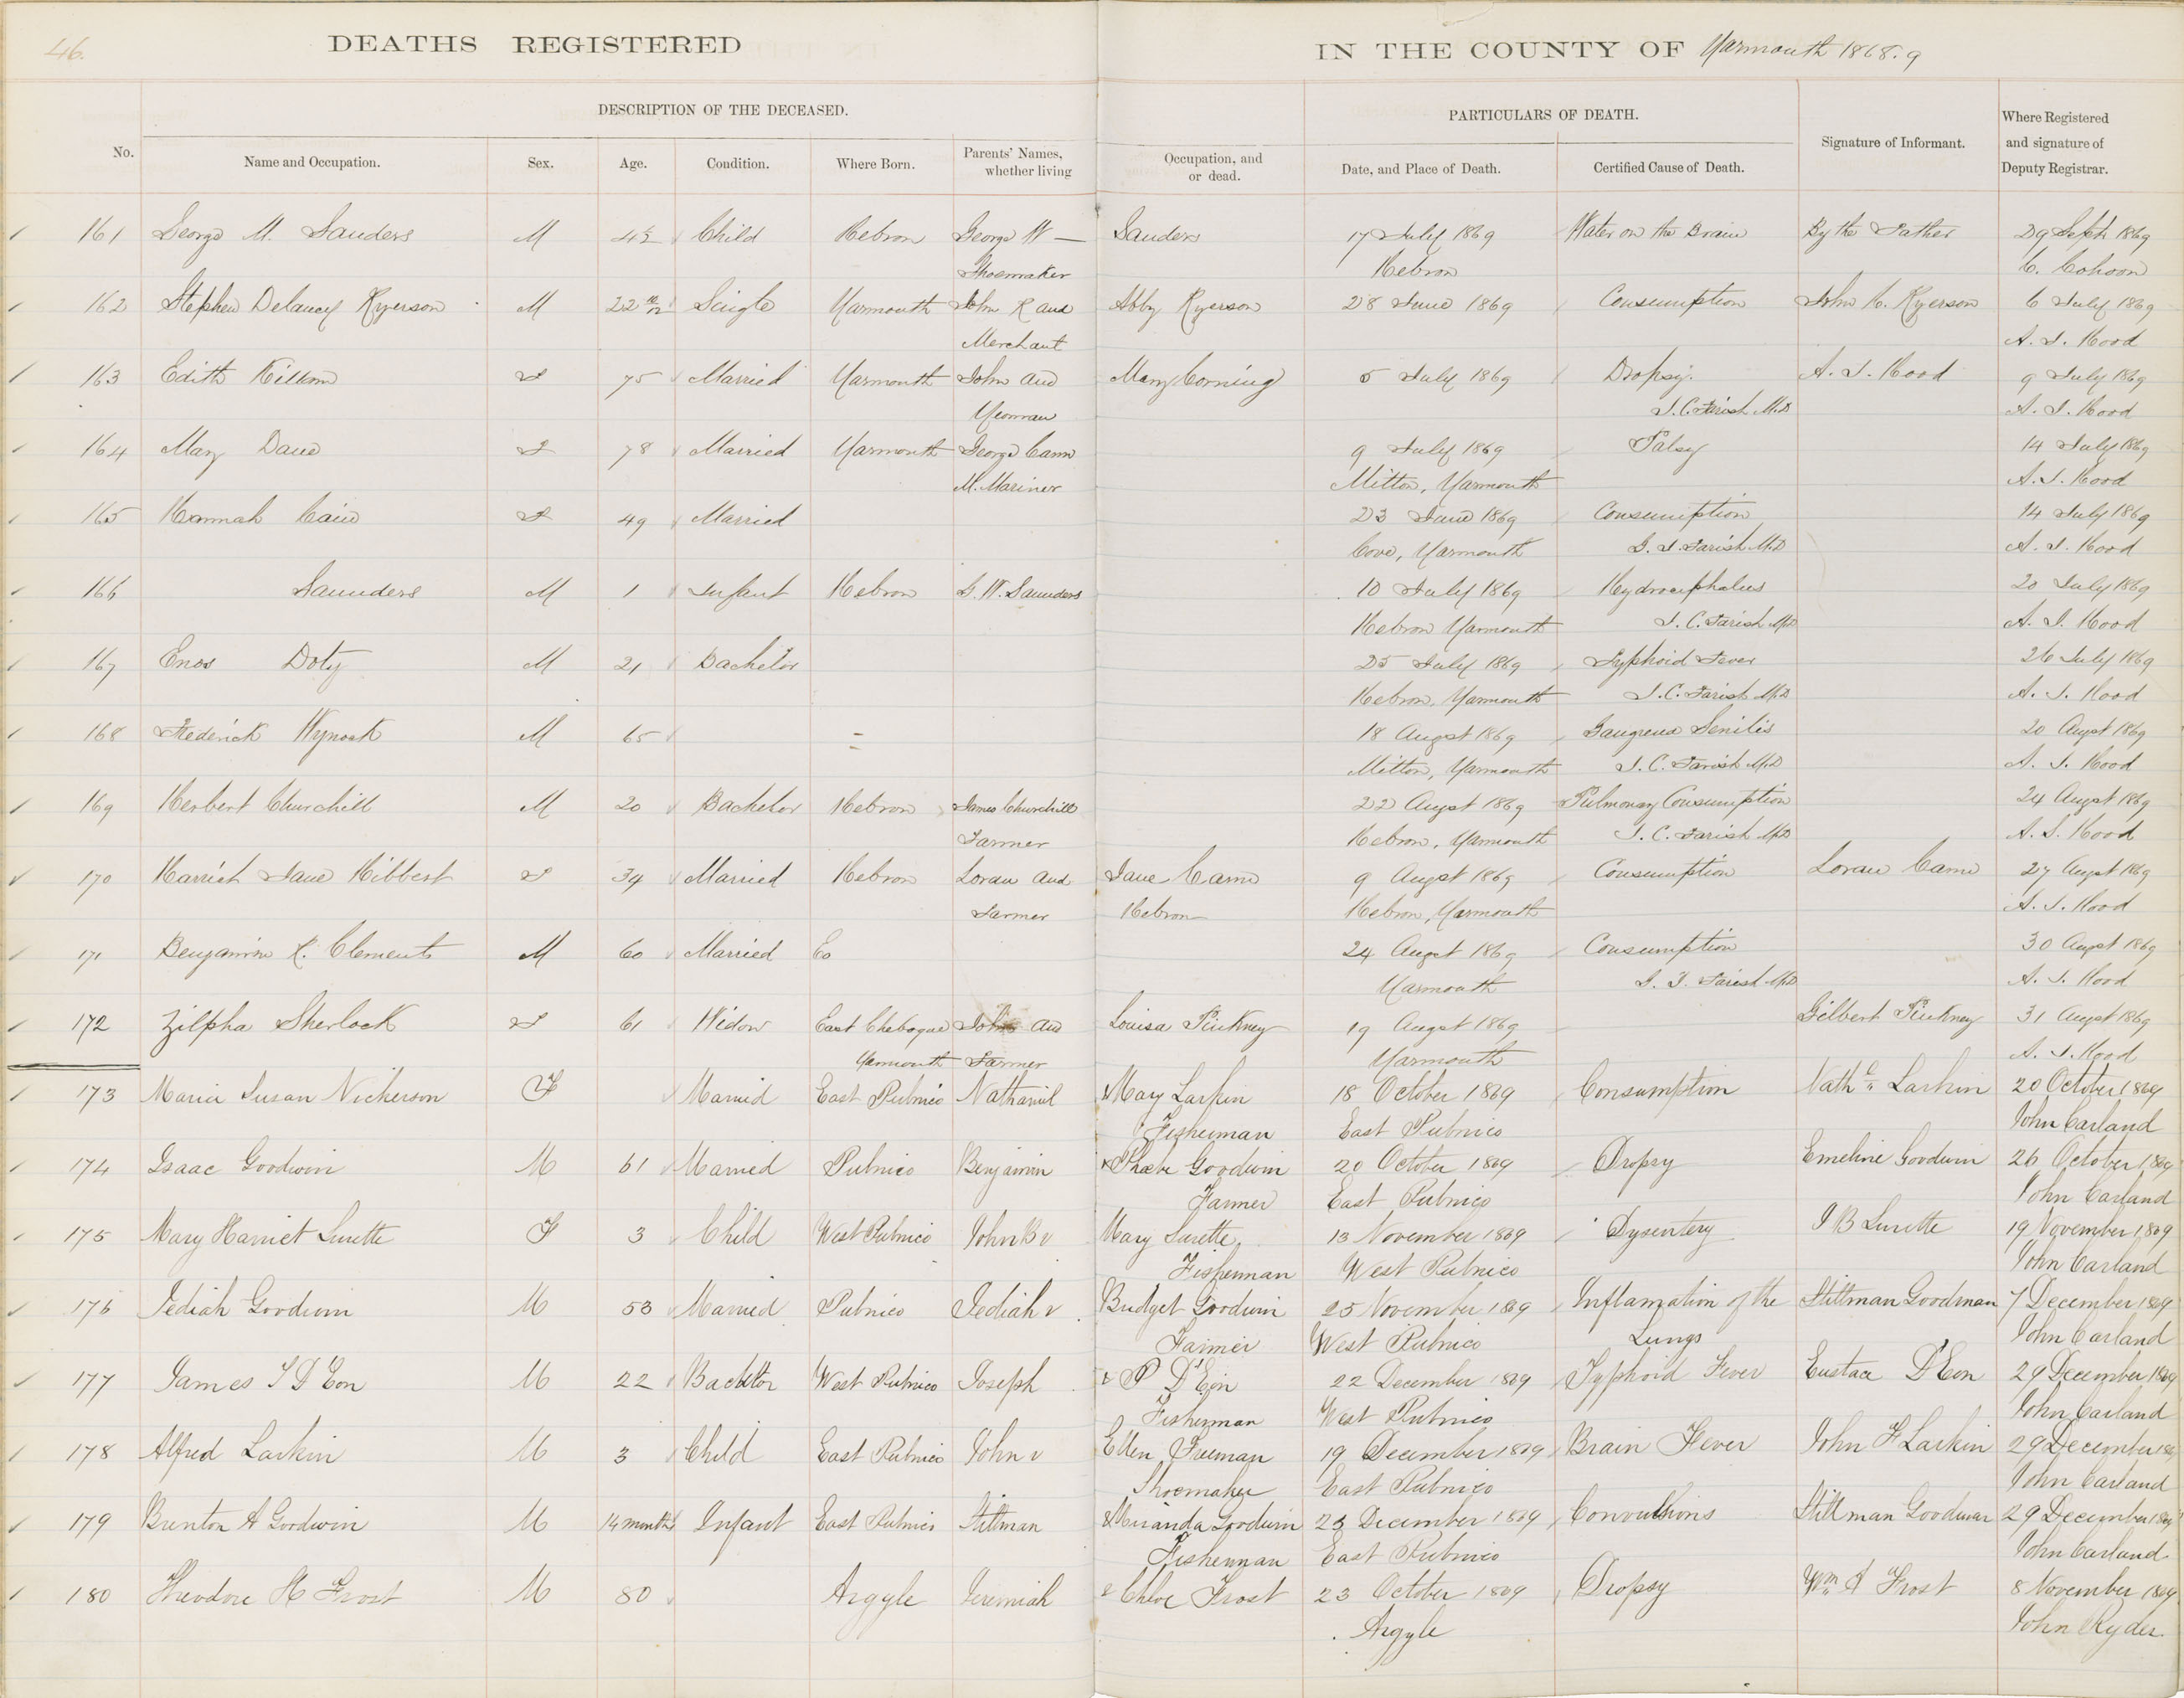 46.
DEATHS REGISTERED IN THE COUNTY OF Yarmouth 1868.9
DESCRIPTION OF THE DECEASED. PARTICULARS OF DEATH.
No. Name and Occupation. Sex. Age. Condition. Where Born. Parents' Names, whether living Occupation, and or dead. Date, and Place of Death. Certified Cause of Death. Signature of Informant. Where Registered and signature of Deputy Registrar.
161 George M. Sanders M Child Hebron George W — Sanders 17 July 1869 Water on the Brain By the Father 29 Sept 1869
Shoemaker Hebron C. Cohoon
162 Stephen Delancey Ryerson M 22 Single Yarmouth John K and Abby Ryerson 28 June 1869 Consumption John K. Ryerson 6 July 1869
Merchant A. J. Hood
163 Edith Killam F 75 Married Yarmouth John and Mary Corning 5 July 1869 Dropsy. A. J. Hood 9 July 1869
Yeoman J. C. Farish M.D A. J. Hood
164 Mary Dane F 78 Married Yarmouth George Cann 9 July 1869 Palsy 14 July 1869
M. Mariner Milton, Yarmouth A. J. Hood
165 Hannah Cain F 49 Married 23 June 1869 Consumption 14 July 1869
Cove, Yarmouth G. J. Farish M.D A. J. Hood
166 Saunders M 1 Infant Hebron G. W. Saunders 10 July 1869 Hydrocephalus 20 July 1869
Hebron Yarmouth J. C. Farish M.D A. J. Hood
167 Enos Doty M 21 Bachelor 25 July 1869 Typhoid Fever 26 July 1869
Hebron, Yarmouth J. C. Farish M.D A. J. Hood
168 Frederick Wynock M 65 18 Augst 1869 Gangrena Senilis 20 Augst 1869
Milton, Yarmouth J. C. Farish M.D A. J. Hood
169 Herbert Churchill M 20 Bachelor Hebron James Churchill 22 Augst 1869 Pulmonary Consumption 24 Augst 1869
Farmer Hebron, Yarmouth J. C. Farish M.D A. J. Hood
170 Harriet Jane Hibbert F 34 Married Hebron Loran and Jane Cann 9 Augst 1869 Consumption Loran Cann 27 Augst 1869
Farmer Hebron Hebron, Yarmouth A. J. Hood
171 Benjamin K. Clements M 60 Married 24 Augst 1869 Consumption 30 Augst 1869
Yarmouth G. J. Farish M.D A. J. Hood
172 Zilpha Sherlock F 61 Widow East Chebogue John and Louisa Pinkney 19 Augst 1869 Gilbert Pinkney 31 Augst 1869
Yarmouth Farmer Yarmouth A. J. Hood
173 Maria Susan Nickerson F Married East Pubnico Nathaniel & Mary Larkin 18 October 1869 Consumption Nathl. Larkin 20 October 1869
Fisherman East Pubnico John Carland
174 Isaac Goodwin M 61 Married Pubnico Benjamin & Phebe Goodwin 20 October 1869 Dropsy Emeline Goodwin 26 October 1869
Farmer East Pubnico John Carland
175 Mary Harriet Surette F 3 Child West Pubnico John B & Mary Surette 13 November 1869 Dysentery J B Surette 19 November 1869
Fisherman West Pubnico John Carland
176 Jediah Goodwin M 53 Married Pubnico Jediah & Bridget Goodwin 25 November 1869 Inflamation of the Stillman Goodman 7 December 1869
Farmer West Pubnico Lungs John Carland
177 James S D'Eon M 22 Bachelor West Pubnico Joseph & P D'Eon 22 December 1869 Typhoid Fever Eustace D'Eon 29 December 1869
Fisherman West Pubnico John Carland
178 Alfred Larkin M 3 Child East Pubnico John & Ellen Freeman 19 December 1869 Brain Fever John F Larkin 29 December 1869
Shoemaker East Pubnico John Carland
179 Brinton A Goodwin M 14 months Infant East Pubnico Stillman & Miranda Goodwin 23 December 1869 Convulsions Stillman Goodwin 29 December 1869
Fisherman East Pubnico John Carland
180 Theodore H Frost M 80 Argyle Jeremiah & Chloe Frost 23 October 1869 Dropsy Wm A Frost 8 November 1869
Argyle John Ryder